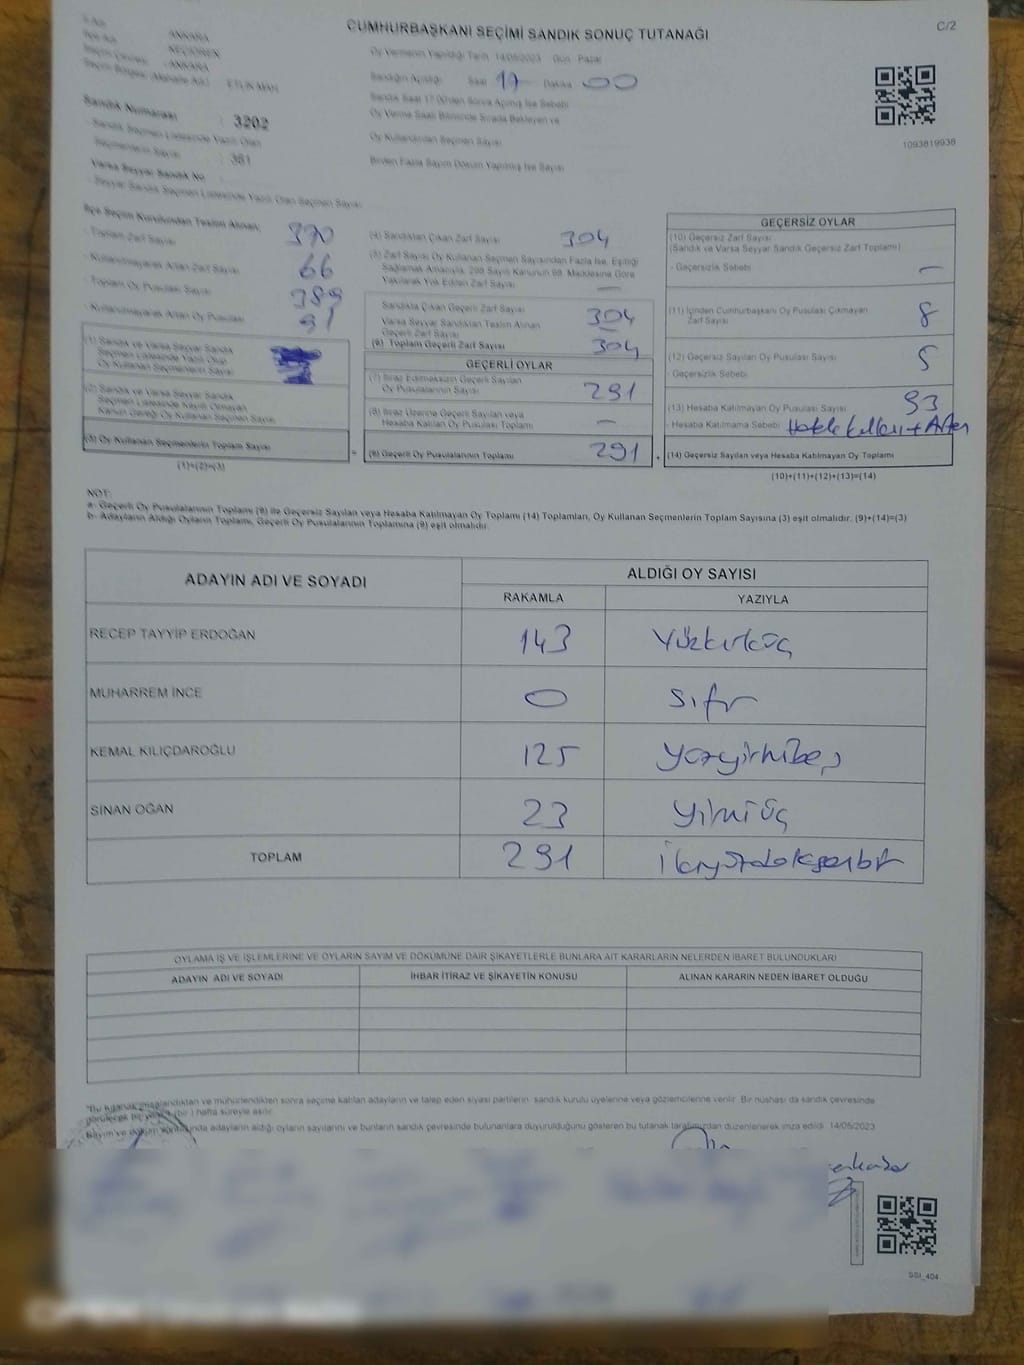 CUMHURBAŞKANI SEÇİMİ SANDIK SONUÇ TUTANAĞI
C/2
ANKARA
KEÇİÖREN
ANKARA
Oy Vermenin Yapıldığı Tarih 14/05/2023 Gün Pazar
Sandığın Açıldığı Saat 17 Dakika 00
Sandık Saat 17:00'den Sonra Açılmış İse Sebebi
Oy Verme Saati Bitiminde Sırada Bekleyen ve
Oy Kullandırılan Seçmen Sayısı
Birden Fazla Sayım Döküm Yapılmış İse Sayısı
1093819938
Sandık Numarası : 3202
- Sandık Seçmen Listesinde Yazılı Olan
Seçmenlerin Sayısı : 381
Varsa Seyyar Sandık No
- Seyyar Sandık Seçmen Listesinde Yazılı Olan Seçmen Sayısı
İlçe Seçim Kurulundan Teslim Alınan;
- Toplam Zarf Sayısı 370
- Kullanılmayarak Artan Zarf Sayısı 66
- Toplam Oy Pusulası Sayısı 389
- Kullanılmayarak Artan Oy Pusulası 91
(1) Sandık ve Varsa Seyyar Sandık
Seçmen Listesinde Yazılı Olan
Oy Kullanan Seçmenlerin Sayısı
(2) Sandık ve Varsa Seyyar Sandık
Seçmen Listesinde Kayıtlı Olmayan
Kanun Gereği Oy Kullanan Seçmen Sayısı
(3) Oy Kullanan Seçmenlerin Toplam Sayısı
(1)+(2)=(3)
(4) Sandıktan Çıkan Zarf Sayısı 304
(5) Zarf Sayısı Oy Kullanan Seçmen Sayısından Fazla İse, Eşitliği
Sağlamak Amacıyla, 298 Sayılı Kanunun 98. Maddesine Göre
Yakılarak Yok Edilen Zarf Sayısı —
Sandıkta Çıkan Geçerli Zarf Sayısı 304
Varsa Seyyar Sandıktan Teslim Alınan
Geçerli Zarf Sayısı —
(6) Toplam Geçerli Zarf Sayısı 304
GEÇERLİ OYLAR
(7) İtiraz Edilmeksizin Geçerli Sayılan
Oy Pusulalarının Sayısı 291
(8) İtiraz Üzerine Geçerli Sayılan veya
Hesaba Katılan Oy Pusulaları Toplamı —
(9) Geçerli Oy Pusulalarının Toplamı 291
GEÇERSİZ OYLAR
(10) Geçersiz Zarf Sayısı
(Sandık ve Varsa Seyyar Sandık Geçersiz Zarf Toplamı)
- Geçersizlik Sebebi —
(11) İçinden Cumhurbaşkanı Oy Pusulası Çıkmayan
Zarf Sayısı 8
(12) Geçersiz Sayılan Oy Pusulası Sayısı 5
- Geçersizlik Sebebi
(13) Hesaba Katılmayan Oy Pusulası Sayısı 93
- Hesaba Katılmama Sebebi
(14) Geçersiz Sayılan veya Hesaba Katılmayan Oy Toplamı
(10)+(11)+(12)+(13)=(14)
NOT:
a- Geçerli Oy Pusulalarının Toplamı (9) ile Geçersiz Sayılan veya Hesaba Katılmayan Oy Toplamı (14) Toplamları, Oy Kullanan Seçmenlerin Toplam Sayısına (3) eşit olmalıdır. (9)+(14)=(3)
b- Adayların Aldığı Oyların Toplamı, Geçerli Oy Pusulalarının Toplamına (9) eşit olmalıdır.
ADAYIN ADI VE SOYADI
ALDIĞI OY SAYISI
RAKAMLA YAZIYLA
RECEP TAYYİP ERDOĞAN 143 Yüzkırküç
MUHARREM İNCE 0 Sıfır
KEMAL KILIÇDAROĞLU 125 Yüzyirmibeş
SİNAN OĞAN 23 Yirmiüç
TOPLAM 291 ikiyüzdoksanbir
OYLAMA İŞ VE İŞLEMLERİNE VE OYLARIN SAYIM VE DÖKÜMÜNE DAİR ŞİKAYETLERLE BUNLARA AİT KARARLARIN NELERDEN İBARET BULUNDUKLARI
ADAYIN ADI VE SOYADI İHBAR İTİRAZ VE ŞİKAYETİN KONUSU ALINAN KARARIN NEDEN İBARET OLDUĞU
"Bu tutanak imzalandıktan ve mühürlendikten sonra seçime katılan adayların ve talep eden siyasi partilerin sandık kurulu üyelerine veya gözlemcilerine verilir. Bir nüshası da sandık çevresinde
görülecek bir yere (bir) hafta süreyle asılır.
Sayım ve döküm sonunda adayların aldığı oyların sayılarını ve bunların sandık çevresinde bulunanlara duyurulduğunu gösteren bu tutanak tarafımızdan düzenlenerek imza edildi. 14/05/2023
SSI_404